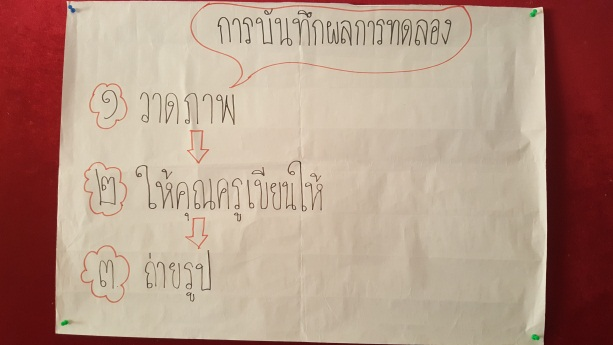 การบันทึกผลการทดลอง
๑ วาดภาพ
๒ ให้คุณครูเขียนให้
๓ ถ่ายรูป